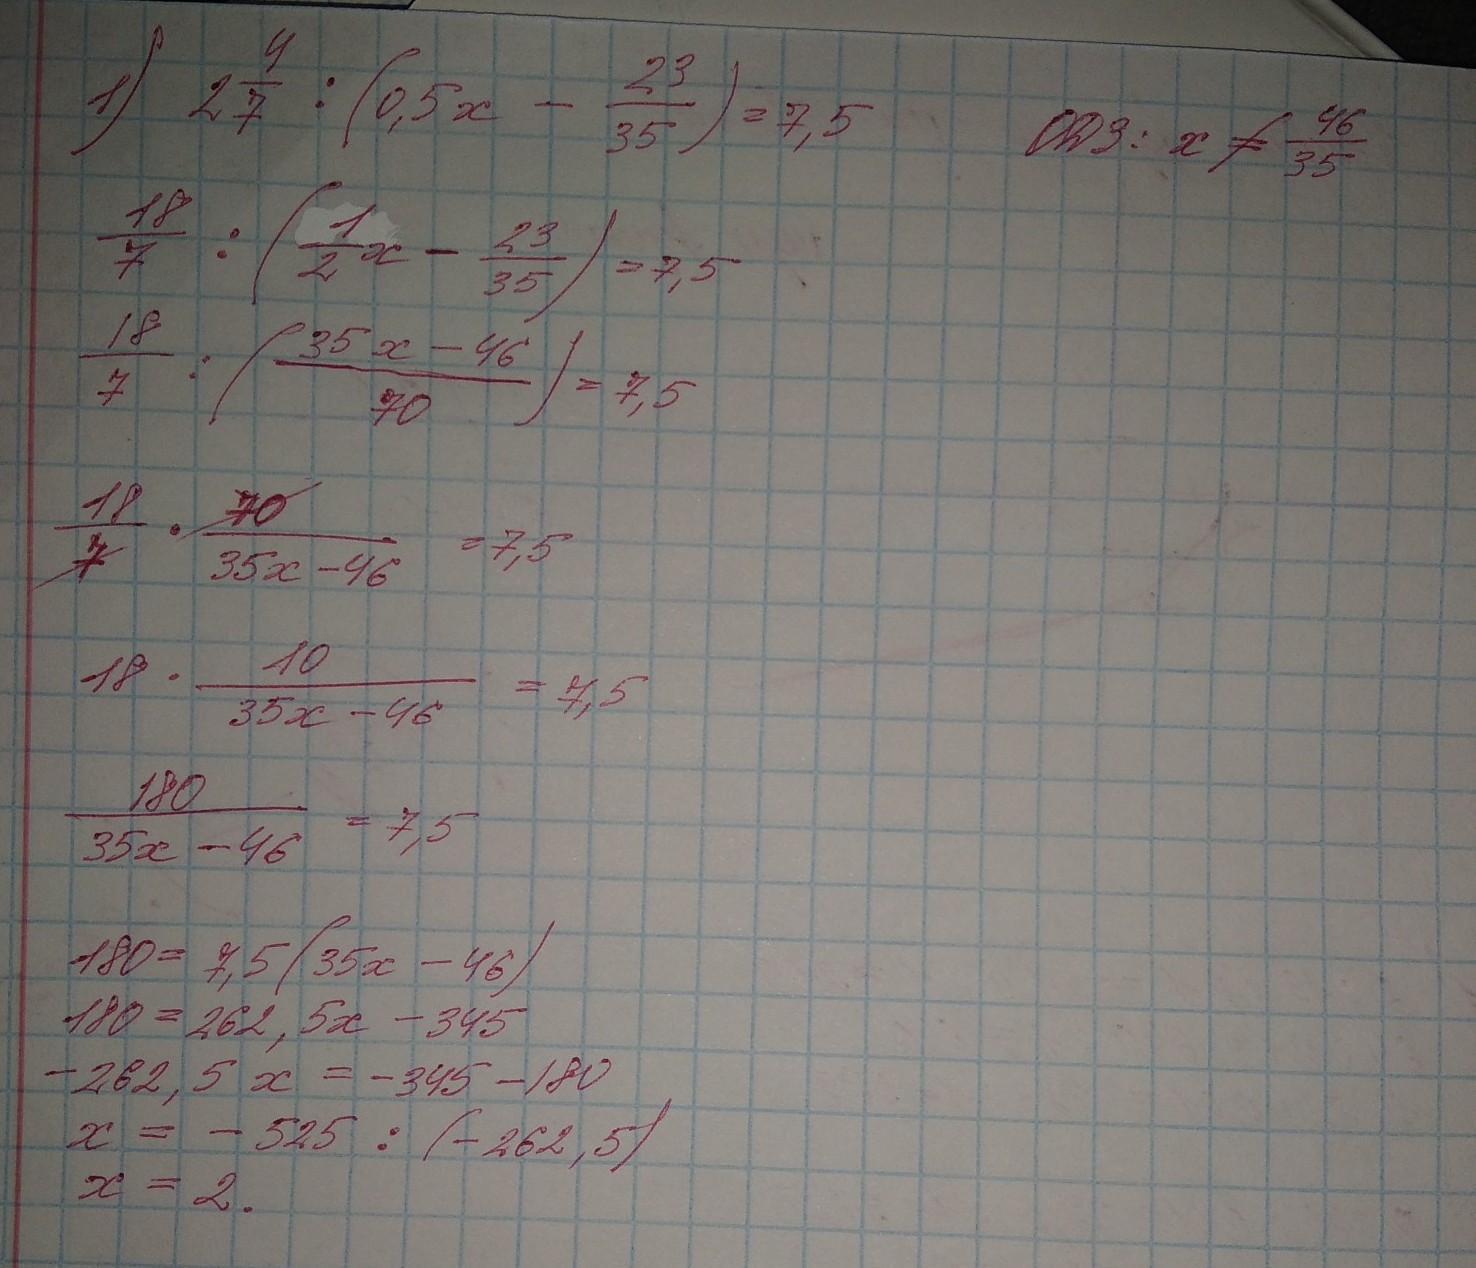 1) 2 4/7 : (0,5x - 23/35) = 7,5 ОДЗ: x ≠ 46/35
18/7 : (1/2 x - 23/35) = 7,5
18/7 : (35x - 46/70) = 7,5
18/7 · 70/35x - 46 = 7,5
18 · 10/35x - 46 = 7,5
180/35x - 46 = 7,5
180 = 7,5(35x - 46)
180 = 262,5x - 345
-262,5x = -345 - 180
x = -525 : (-262,5)
x = 2.